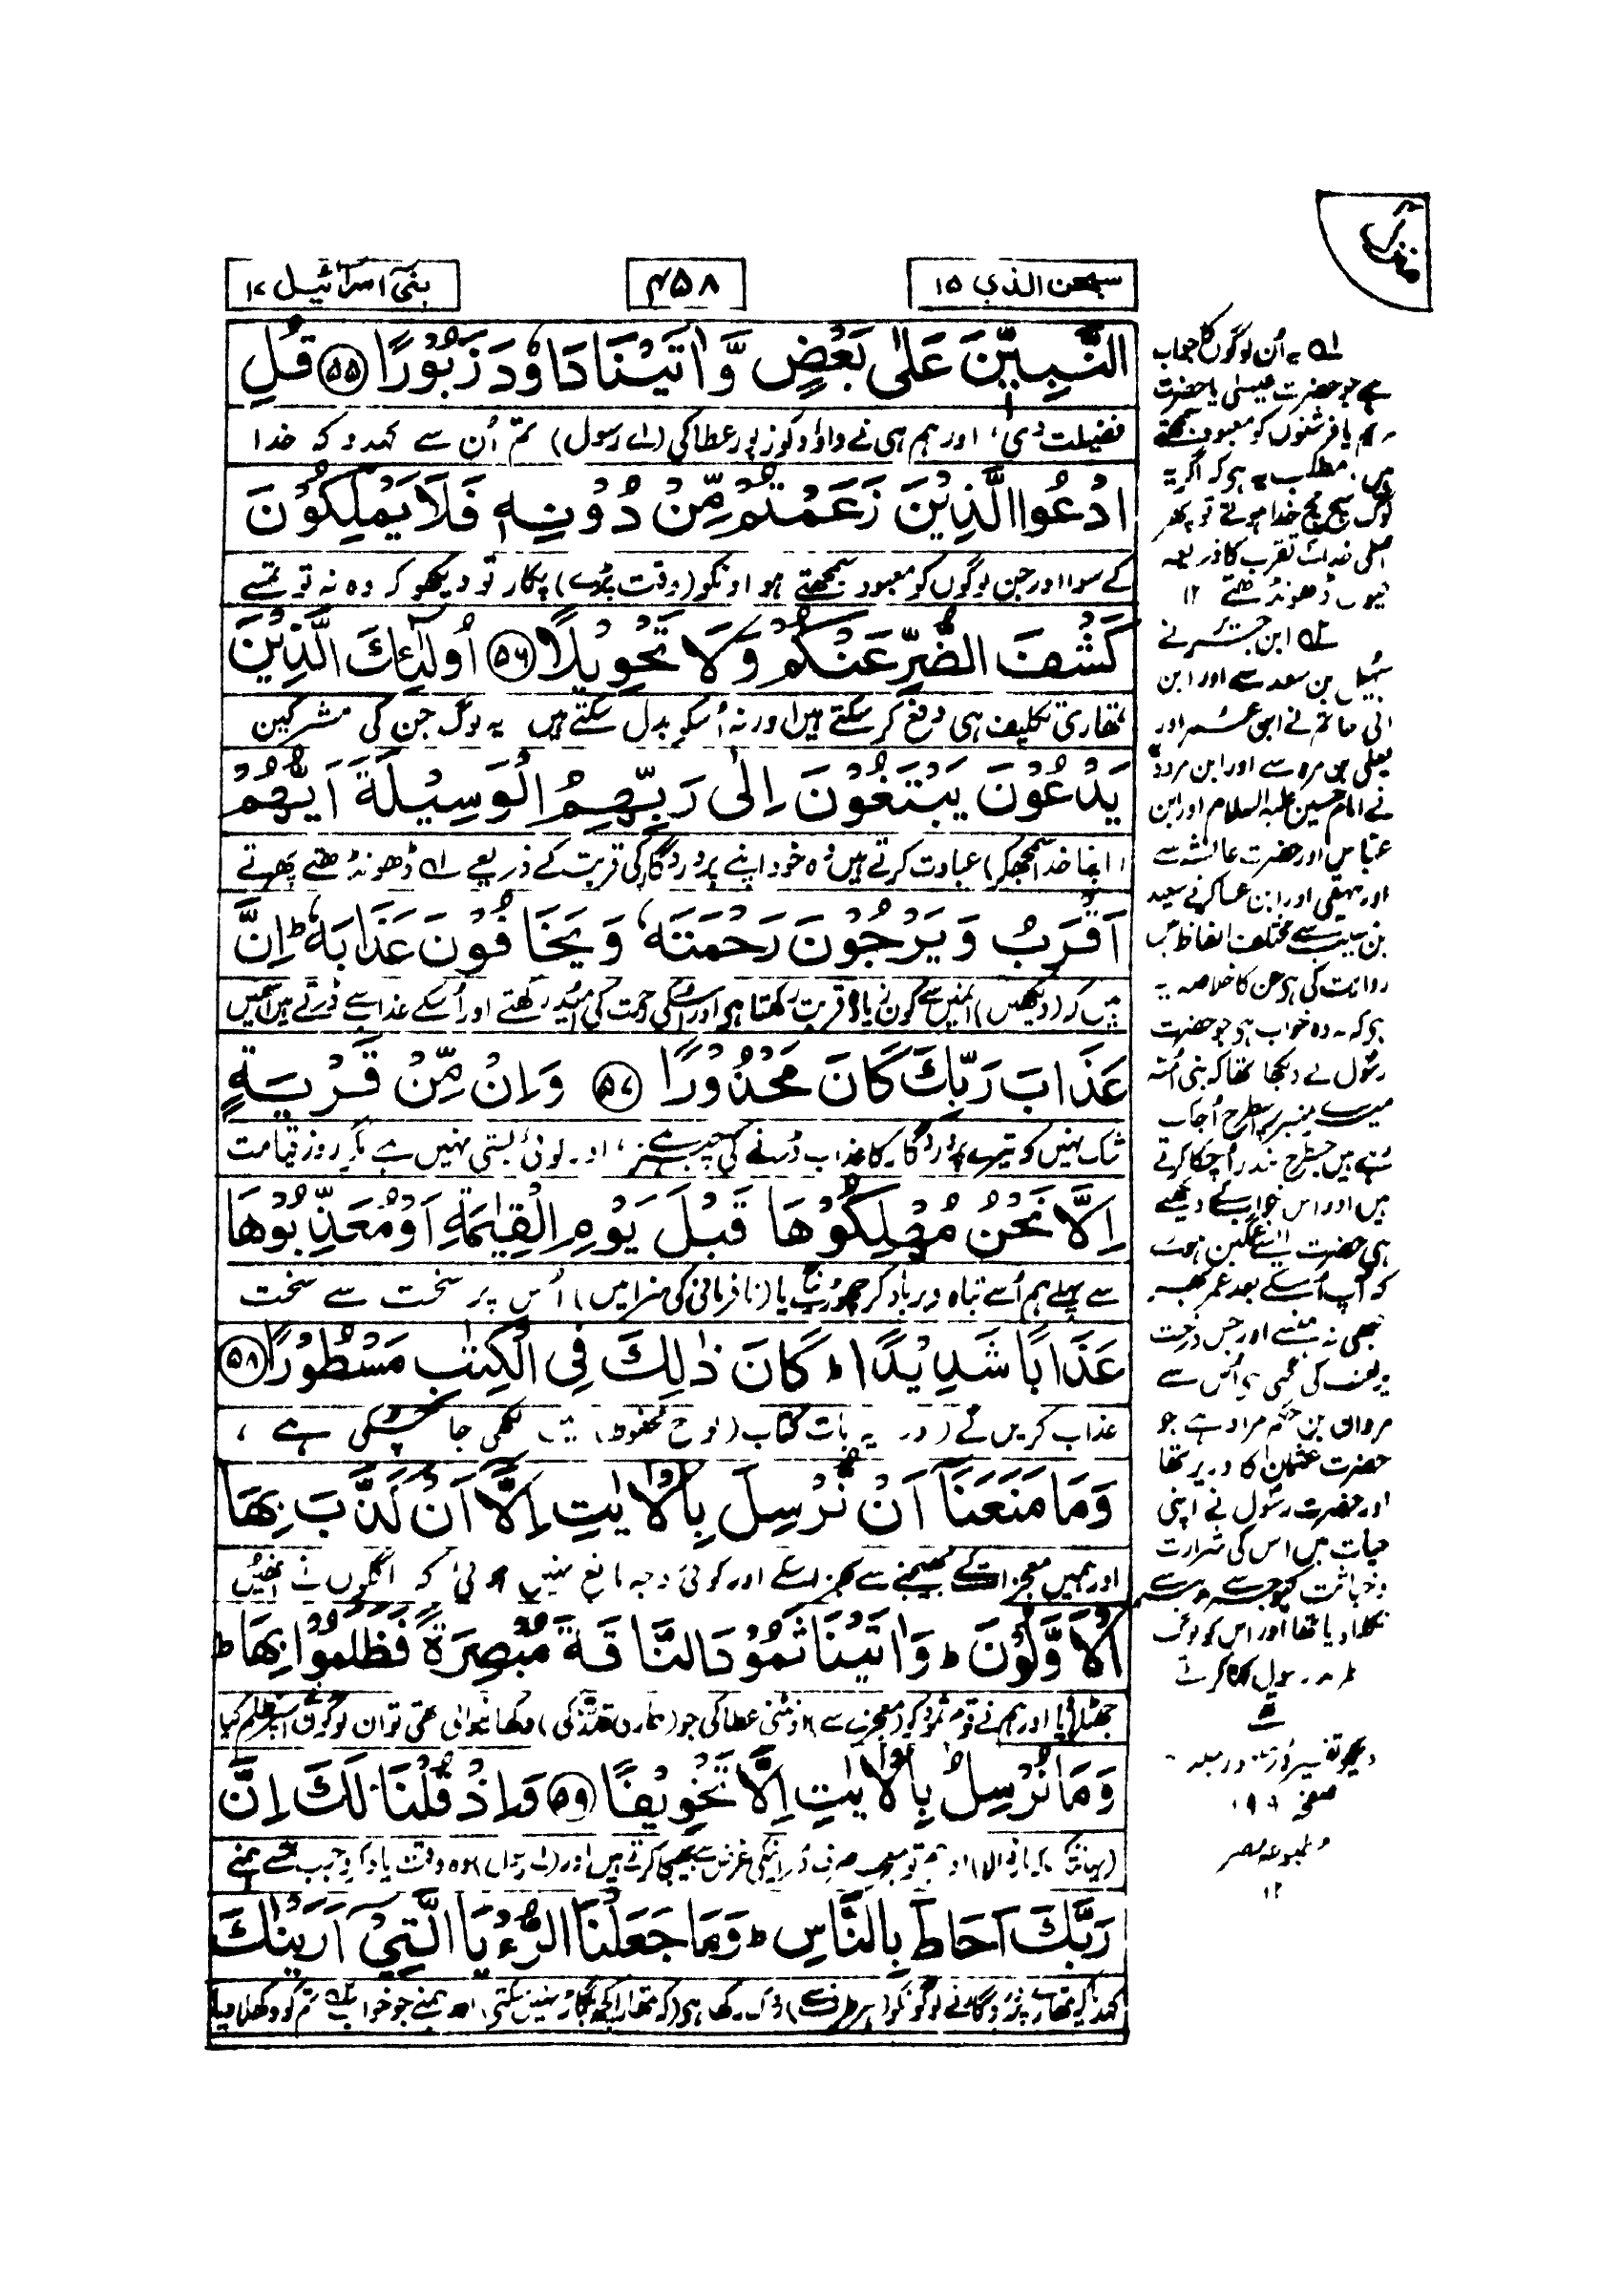 منزل
سبحن الذی ۱۵
۴۵۸
بنی اسرائیل ۱۷
النَّبِیّٖنَ عَلٰی بَعْضٍ وَّاٰتَیْنَا دَاوٗدَ زَبُوْرًا ﴿۵۵﴾ قُلِ
فضیلت دی، اور ہم ہی نے داؤد کو زبور عطا کی (اے رسول) تم اُن سے کہدو کہ خدا
ادْعُوا الَّذِیْنَ زَعَمْتُمْ مِّنْ دُوْنِهٖ فَلَا یَمْلِكُوْنَ
کے سوا اور جن لوگوں کو معبود سمجھتے ہو اونکو (وقت پڑے) پکار تو دیکھو کہ وہ نہ تو تمسے
كَشْفَ الضُّرِّ عَنْكُمْ وَلَا تَحْوِیْلًا ﴿۵۶﴾ اُولٰٓئِكَ الَّذِیْنَ
تمھاری تکلیف ہی دفع کر سکتے ہیں اور نہ اُسکو بدل سکتے ہیں یہ لوگ جن کی مشرکین
یَدْعُوْنَ یَبْتَغُوْنَ اِلٰی رَبِّهِمُ الْوَسِیْلَةَ اَیُّهُمْ
(اپنا خدا سمجھکر) عبادت کرتے ہیں وہ خود اپنے پروردگار کی قربت کے ذریعے ۱ ڈھونڈھتے پھرتے
اَقْرَبُ وَیَرْجُوْنَ رَحْمَتَهٗ وَیَخَافُوْنَ عَذَابَهٗ ؕ اِنَّ
ہیں کہ (دیکھیں) انمیں سے کون زیادہ قربت رکھتا ہے اور اُسکی رحمت کی امید رکھتے اور اُسکے عذاب سے ڈرتے ہیں اسمیں
عَذَابَ رَبِّكَ كَانَ مَحْذُوْرًا ﴿۵۷﴾ وَاِنْ مِّنْ قَرْیَةٍ
شک نہیں کہ تیرے پروردگار کا عذاب ڈرنے کی چیز ہے، اور کوئی بستی نہیں ہے مگر روز قیامت
اِلَّا نَحْنُ مُهْلِكُوْهَا قَبْلَ یَوْمِ الْقِیٰمَةِ اَوْ مُعَذِّبُوْهَا
سے پہلے ہم اُسے تباہ و برباد کر چھوڑینگے یا (نافرمانی کی سزا میں) اُس پر سخت سے سخت
عَذَابًا شَدِیْدًا ؕ كَانَ ذٰلِكَ فِی الْكِتٰبِ مَسْطُوْرًا ﴿۵۸﴾
عذاب کریں گے (اور یہ بات کتاب (لوح محفوظ) میں لکھی جا چکی ہے،
وَمَا مَنَعَنَاۤ اَنْ نُّرْسِلَ بِالْاٰیٰتِ اِلَّاۤ اَنْ كَذَّبَ بِهَا
اور ہمیں معجزات کے بھیجنے سے بجز اسکے اور کوئی وجہ مانع نہیں ہوئی کہ اگلوں نے انھیں
الْاَوَّلُوْنَ ؕ وَاٰتَیْنَا ثَمُوْدَ النَّاقَةَ مُبْصِرَةً فَظَلَمُوْا بِهَا ؕ
جھٹلا دیا اور ہم نے قوم ثمود کو (معجزے سے) اونٹنی عطا کی جو (ہماری قدرت کی) دکھانیوالی تھی تو ان لوگوں نے اسپر ظلم کیا
وَمَا نُرْسِلُ بِالْاٰیٰتِ اِلَّا تَخْوِیْفًا ﴿۵۹﴾ وَاِذْ قُلْنَا لَكَ اِنَّ
اور ہم تو معجزے صرف ڈرانیکی غرض سے بھیجا کرتے ہیں اور (اے رسول) وہ وقت یاد کرو جب تم سے ہمنے
رَبَّكَ اَحَاطَ بِالنَّاسِ ؕ وَمَا جَعَلْنَا الرُّءْیَا الَّتِیْۤ اَرَیْنٰكَ
کہدیا کہ تمھارے پروردگار نے لوگونکو (ہر طرف سے) روک رکھا ہے (کہ تمھارا کچھ بگاڑ نہیں سکتے) اور ہمنے جو خواب ۲ تم کو دکھلایا
۱ یہ اُن لوگوں کا جواب
ہے جو حضرت عیسیٰ یا حضرت
مریم یا فرشتوں کو معبود سمجھتے
ہیں۔ مطلب یہ ہی کہ اگر یہ
لوگ سچ مچ خدا ہوتے تو پھر
اصلی خدا سے تقرب کا ذریعہ
کیوں ڈھونڈھتے ۱۲
۲ ابن جریر نے
سہیل بن سعد سے اور ابن
ابی حاتم نے ابن عمر اور
یعلی بن مرہ سے اور ابن مردویہ
نے امام حسین علیہ السلام اور ابن
عباس اور حضرت عائشہ سے
اور بیہقی اور ابن عساکر نے سعید
بن مسیب سے مختلف الفاظ میں
روایت کی ہی جن کا خلاصہ یہ
ہی کہ یہ وہ خواب ہی جو حضرت
رسول نے دیکھا تھا کہ بنی امیہ
میرے منبر پر اسطرح اُچک
رہے ہیں جسطرح بندر اُچکا کرتے
ہیں اور اس خواب کے دیکھتے
ہی حضرت ایسے غمگین ہوئے
کہ آپ اُسکے بعد عمر بھر
کبھی نہ ہنسے اور جس درخت
پر لعنت کی گئی ہی اُس سے
مروان بن حکم مراد ہے جو
حضرت عثمان کا وزیر تھا
اور حضرت رسول نے اپنی
حیات میں اس کی شرارت
و خباثت کیوجہ سے مدینہ سے
نکلوا دیا تھا اور اس کو لوگ
طرید رسول کہا کرتے
تھے
دیکھو تفسیر در منثور جلد
صفحہ
مطبوعہ مصر
۱۲